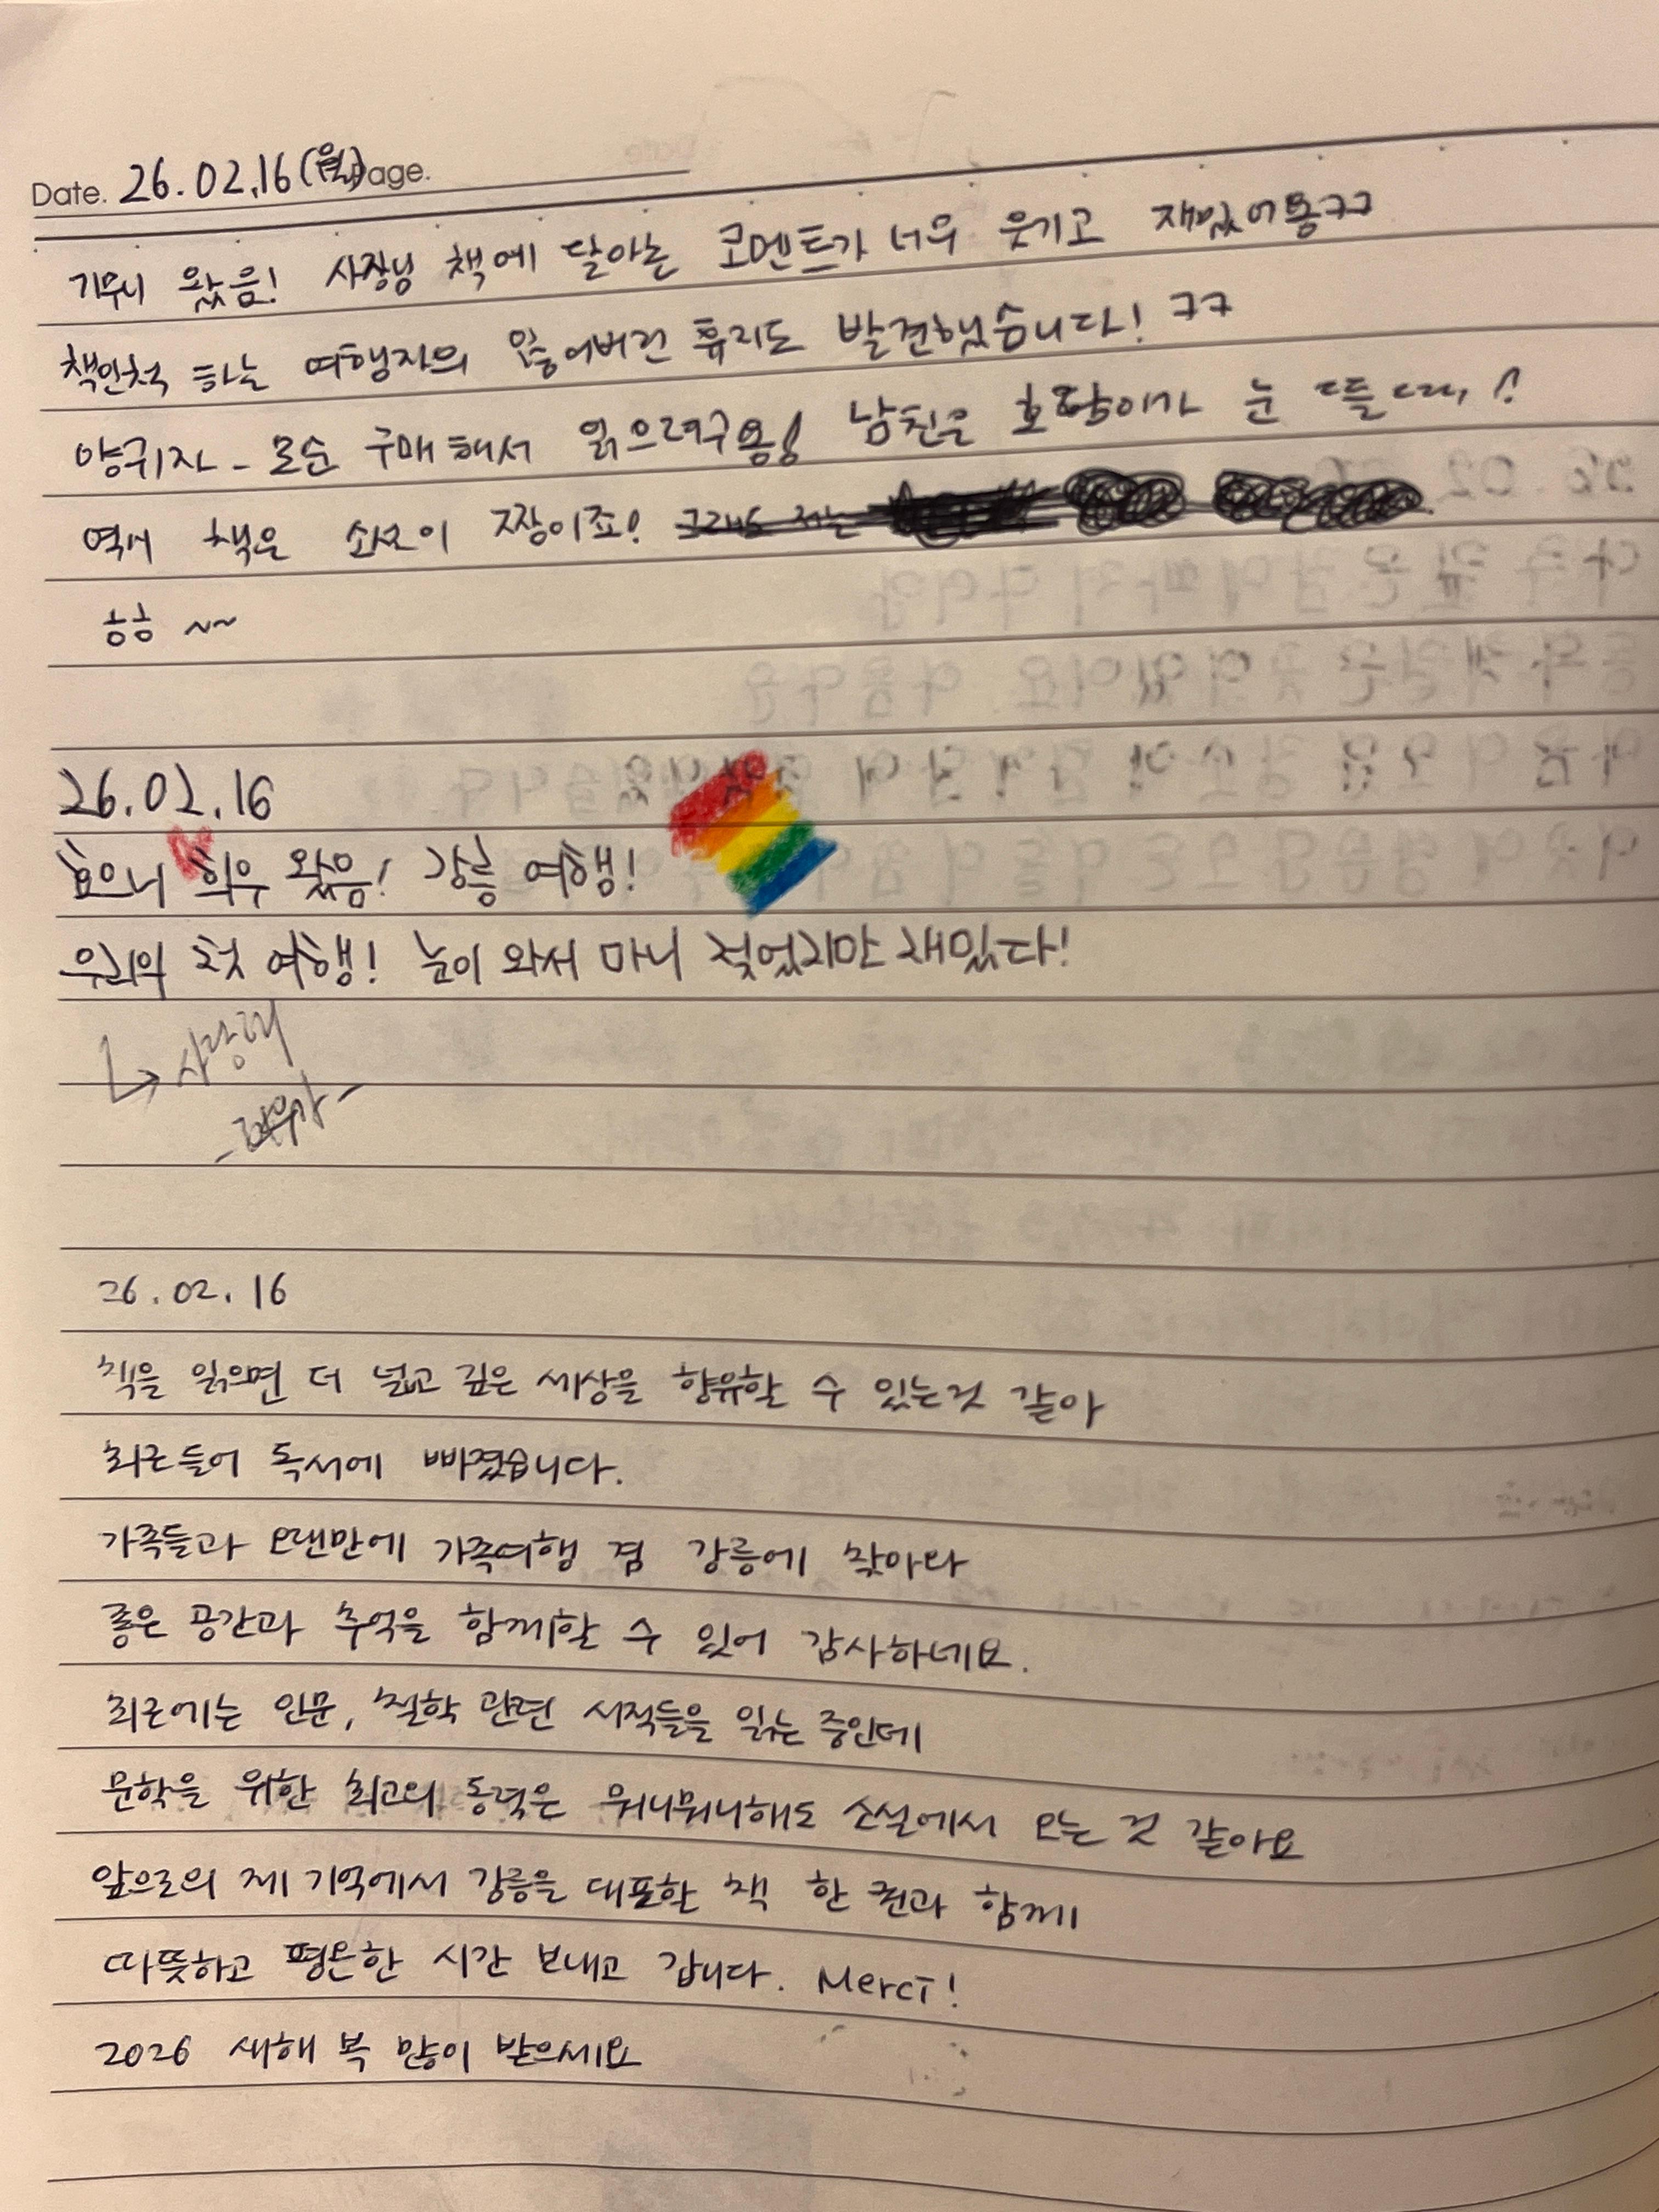 Date. 26.02.16(월) age.
기무니 왔음! 사장님 책에 달아논 코멘트가 너무 웃기고 재밌어용ㅋㅋ
책인척 하는 여행자의 잃어버린 휴지도 발견했습니다! ㅋㅋ
양귀자 - 모순 구매해서 읽으려구용! 남친은 호랑이가 눈 뜰때, !
역시 책은 소설이 짱이죠! 그래서 저는
흥흥 ~~
26.02.16
효으니 희우 왔음! 강릉 여행!
우리의 첫 여행! 눈이 와서 마니 젖었지만 재밌다!
사랑해
26.02.16
책을 읽으면 더 넓고 깊은 세상을 향유할 수 있는것 같아
최근들어 독서에 빠졌습니다.
가족들과 오랜만에 가족여행 겸 강릉에 찾아와
좋은 공간과 추억을 함께할 수 있어 감사하네요.
최근에는 인문, 철학 관련 서적들을 읽는 중인데
문학을 위한 최고의 동력은 뭐니뭐니해도 소설에서 오는 것 같아요
앞으로의 제 기억에서 강릉을 대표할 책 한 권과 함께
따뜻하고 평온한 시간 보내고 갑니다. Merci!
2026 새해 복 많이 받으세요